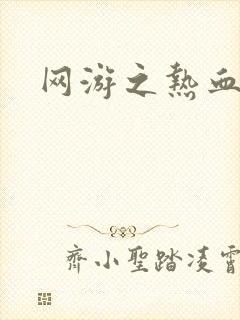 网游之热血
齐小聖踏凌霄